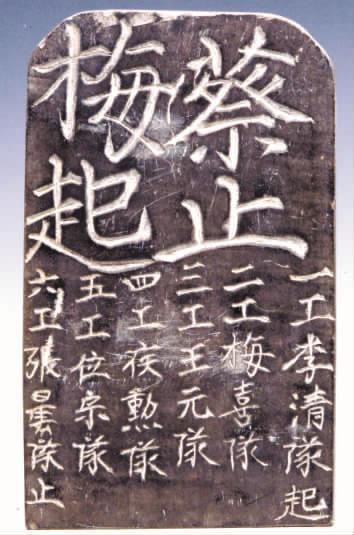 蔡止
梅起
一工李清隊起
二工梅喜隊
三工王元隊
四工疾勲隊
五工位宗隊
六工張曇隊止